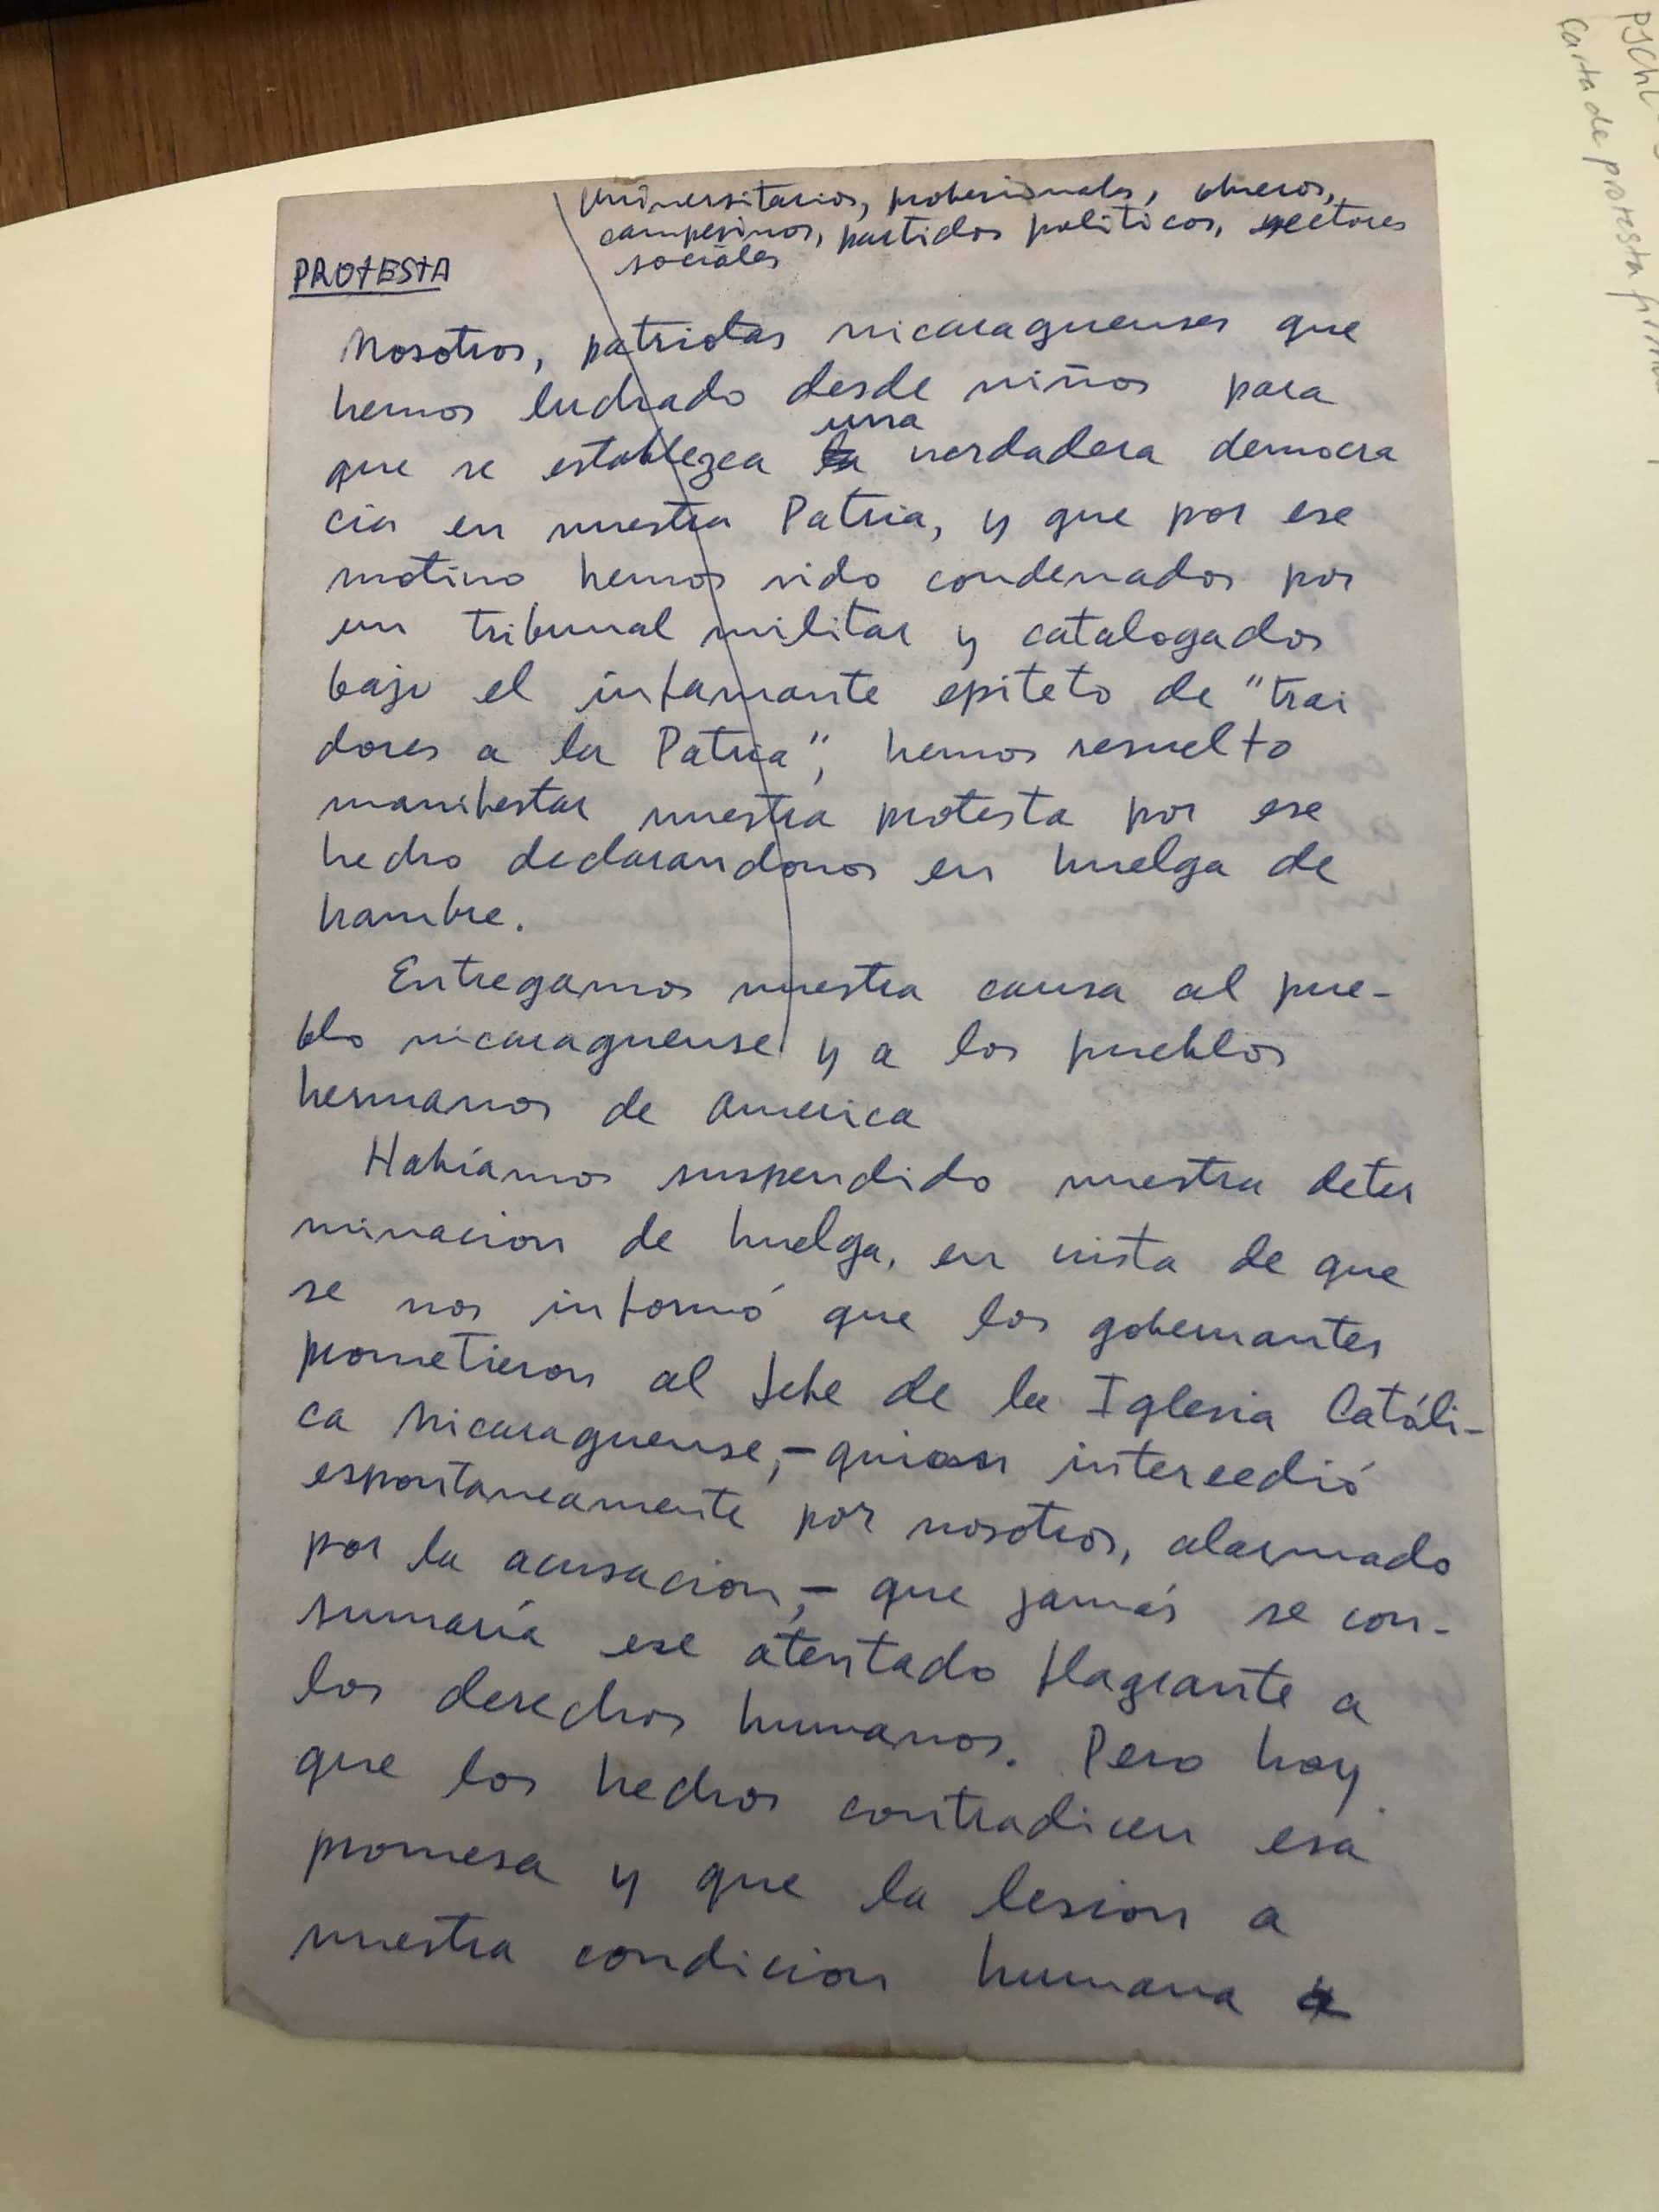 Universitarios, profesionales, obreros,
campesinos, partidos politicos, sectores
sociales
PROTESTA
Nosotros, patriotas nicaraguenses que
hemos luchado desde niños para
una
que se establezca la verdadera democra
cia en nuestra Patria, y que por ese
motivo hemos sido condenados por
un tribunal militar y catalogados
bajo el infamante epiteto de "trai
dores a la Patria", hemos resuelto
manifestar nuestra protesta por ese
hecho declarandonos en huelga de
hambre.
Entregamos nuestra causa al pue-
blo nicaraguense y a los pueblos
hermanos de America
Habíamos suspendido nuestra deter
minacion de huelga, en vista de que
se nos informó que los gobernantes
prometieron al Jefe de la Iglesia Catáli-
ca Nicaraguense,- quien intercedió
espontaneamente por nosotros, alarmado
por la acusacion,- que jamás se con-
sumaría ese atentado flagrante a
los derechos humanos. Pero hoy
que los hechos contradicen esa
promesa y que la lesion a
nuestra condicion humana
PJCHC
Carta de protesta